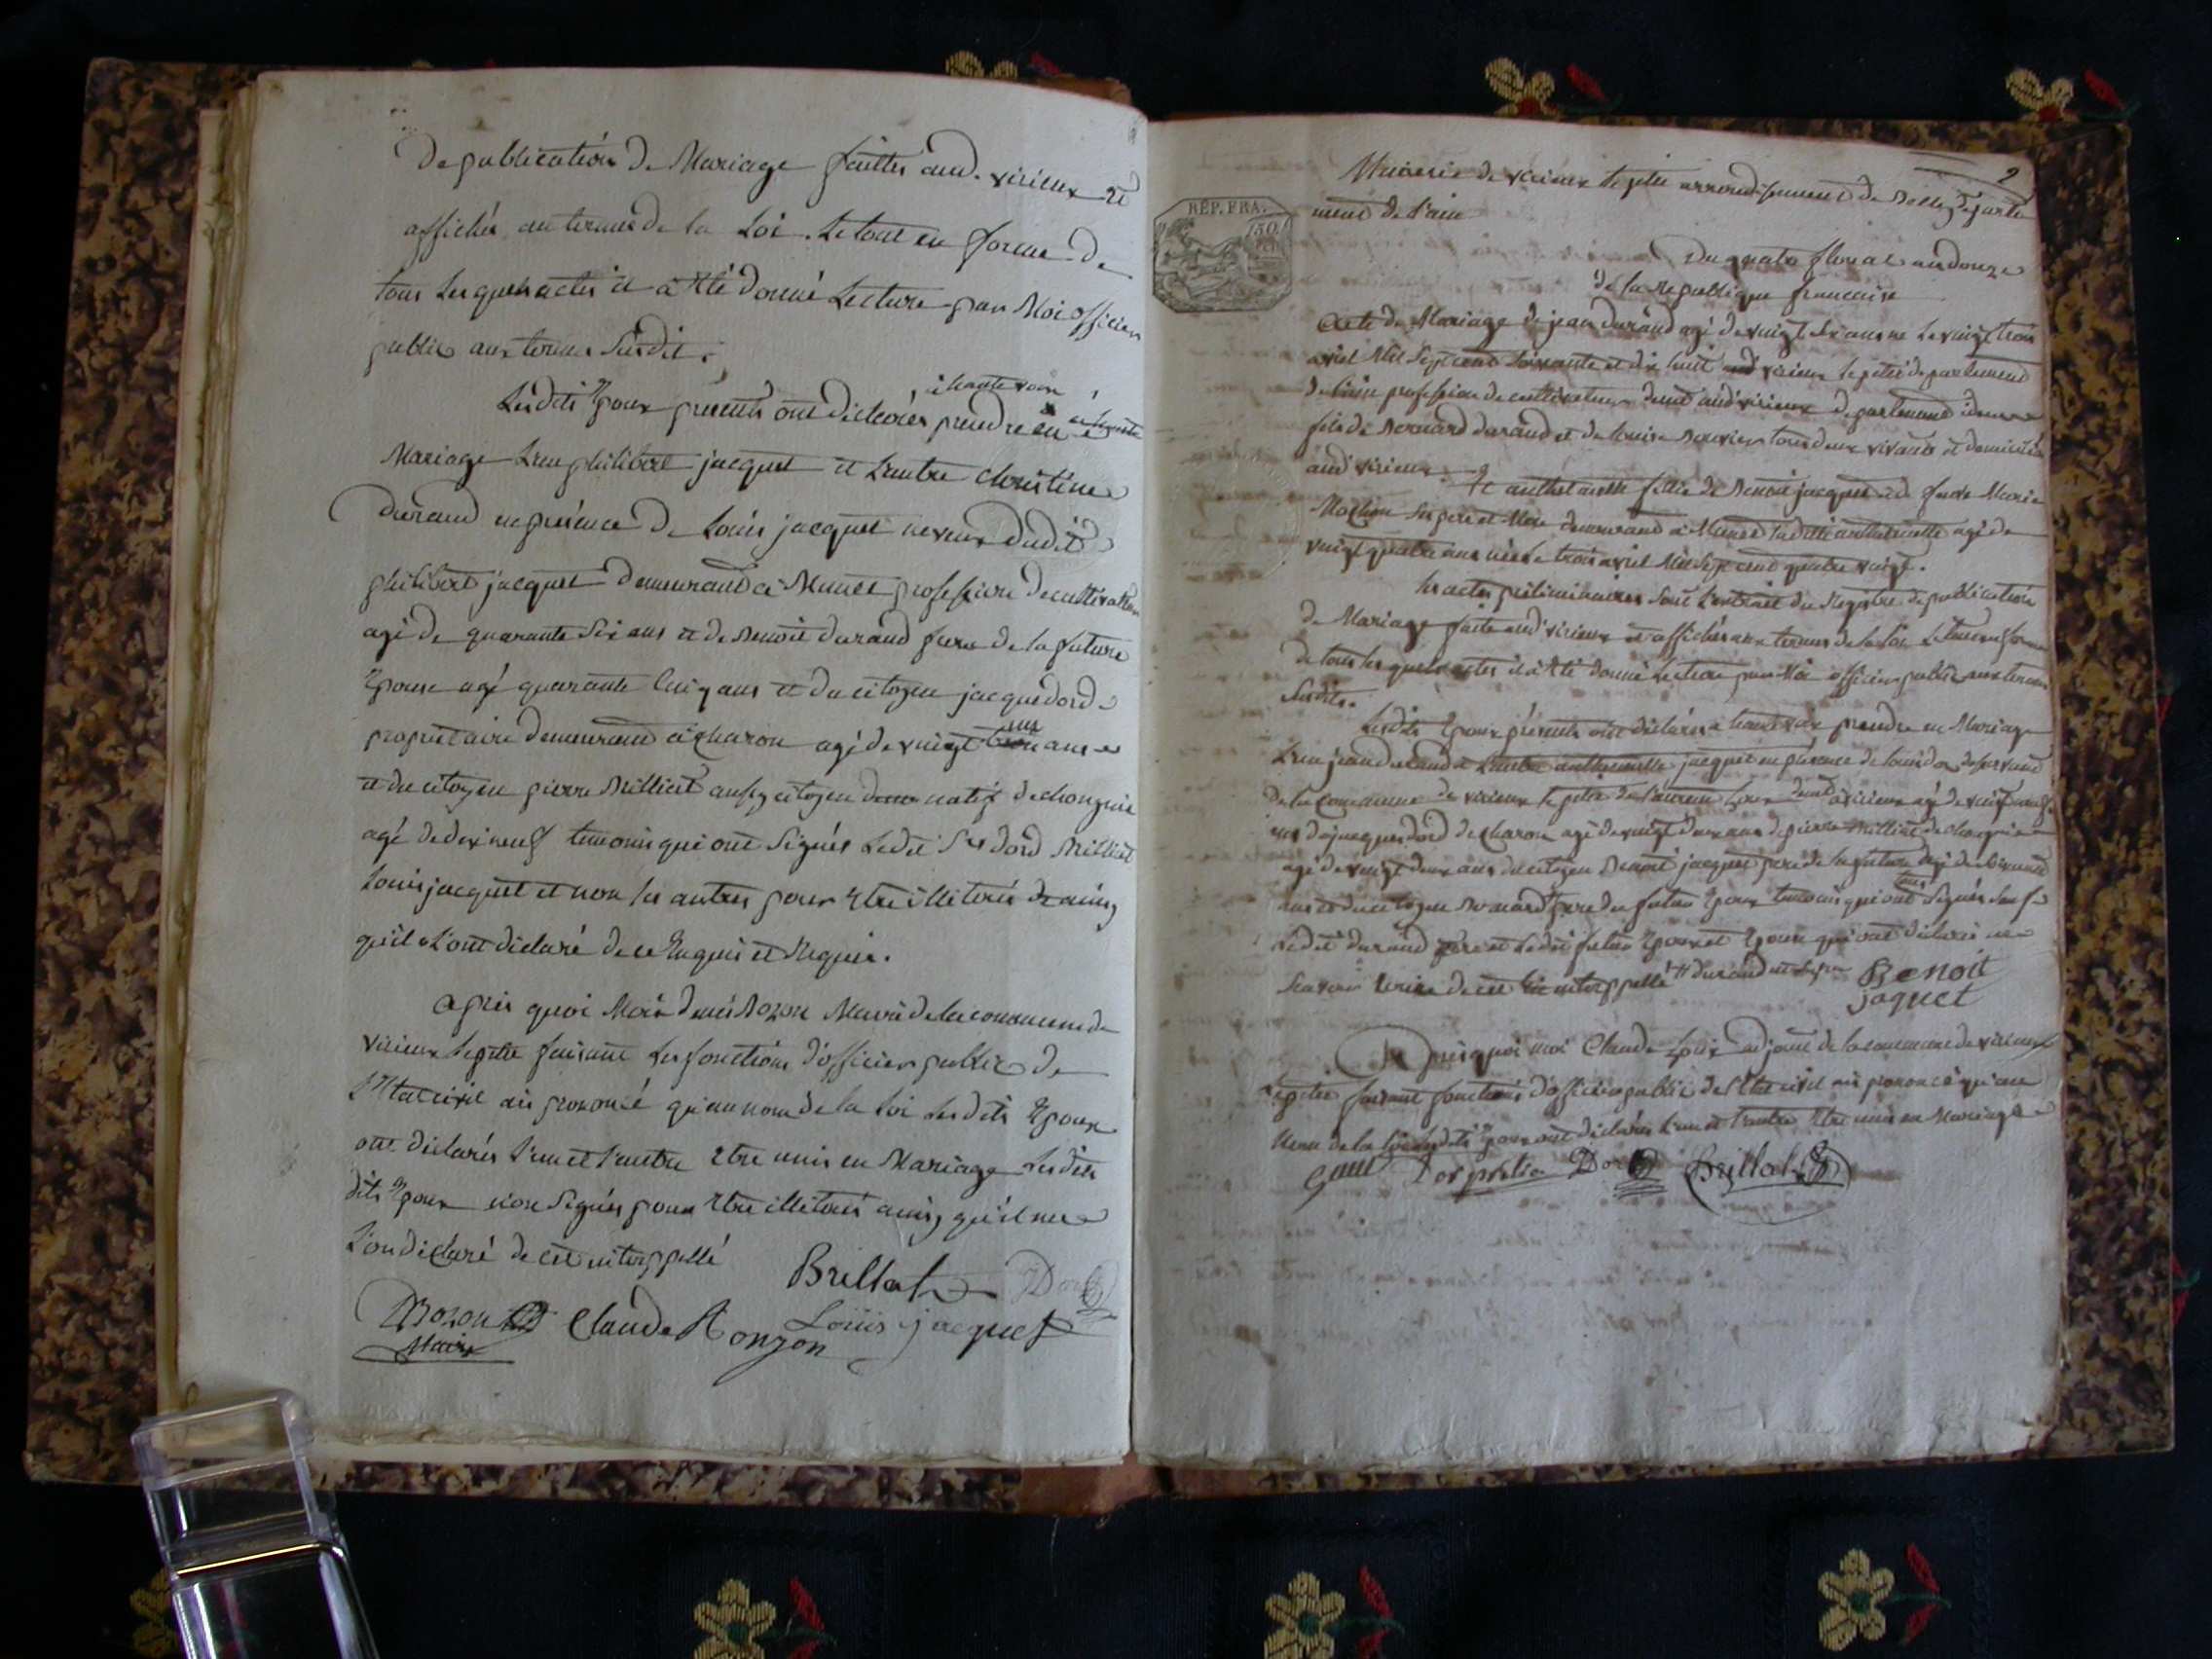 De publication De Mariage faittes aud. virieux et
affichés au termes de la Loi. Le tout en forme De
tous Lesquels actes il a Eté donné Lecture par Moi officier
public aux termes Susdit.
à haute voix
Lesdits Epoux presents ont déclarés prendre en
Mariage L'un philibert jacquet et L'autre Christine
Durand en présence De Louis jacquet neveux Dudit
philibert jacquet Demeurant à Munet profession De cultivateur
agé de quarante Six ans et de Benoit durand frere de la future
Epouse agé quarante Cinq ans et du citoyen jacque dord
propriétaire demeurant à Charon agé de vingt un ans
et du citoyen pierre Brilliat citoyen natif de chongnie
agé de dix neuf temoins qui ont Signés Ledit Sr dord Brilliat
Louis jacquet et non les autres pour Etre illiterés ainsy
qu'il L'ont déclaré de ce Enquis et Requis.
après quoi Moi denis Bozon Maire de la commune de
virieux Le petit faisant Les fonctions d'officier public De
L'Etat civil ai prononcé qu'au nom de la Loi Les dits Epoux
ont déclarés L'un et L'autre Etre unis en Mariage Lesdits
dits Epoux non Signés pour Etre illiterés ainsy qu'il me
L'on déclaré de ce interppellé
Brillat Dord
Bozon Claude Ronzon Louis jacquet
Maire
2
Mairie de virieux Le petit arrondissement de Belley departe
ment de L'ain
REP. FRA.
Du quatre floreal an douze
de la Republique francaise
Acte de Mariage de jean durand agé de vingt Six ans né Le vingt trois
avril Mil Sept cent Soixante et dix huit aud virieux Le petit departement
de L'ain profession de cultivateur demt aud virieux departement idem
fils de Bernard durand et de Louise tous deux vivants et domiciliés
aud virieux. Et anthelmette fille de Benoit jacquet et de feue Marie
Ses pere et Mere demeurant à Munet Ladite anthelmette agé de
vingt quatre ans née Le trois avril Mil Sept cent quatre vingt.
Les actes préliminaires Sont L'extrait du Registre de publication
de Mariage faite aud virieux et affichés aux termes de la Loi Le tout en forme
de tous Lesquels actes il a Eté donné Lecture par Moi officier public aux termes
Susdits.
Lesdits Epoux présents ont déclarés à haute voix prendre en Mariage
L'un jean durand et L'autre anthelmette jacquet en présence de Louis
de la Commune de virieux Le petit de demt à virieux agé de vingt neuf
ans de jacques dord de Charon agé de vingt deux ans de pierre Brilliat de chongnie
agé de vingt deux ans du citoyen Benoit jacquet pere de la future agé de
tous
ans et du citoyen Bernard pere du futur Epoux temoins qui ont Signés Sauf
Ledit durand pere et Ledit futur Epoux et Epouse qui ont déclaré ne
Scavoir Ecrire de ce interppellé
Benoit
jaquet
Après quoi moi Claude adjoint de la commune de virieux
Le petit faisant fonctions d'officier public de L'Etat civil ai prononcé qu'au
Nom de la Loi Lesdits Epoux ont déclarés L'un et L'autre Etre unis en Mariage
Dord Brillat